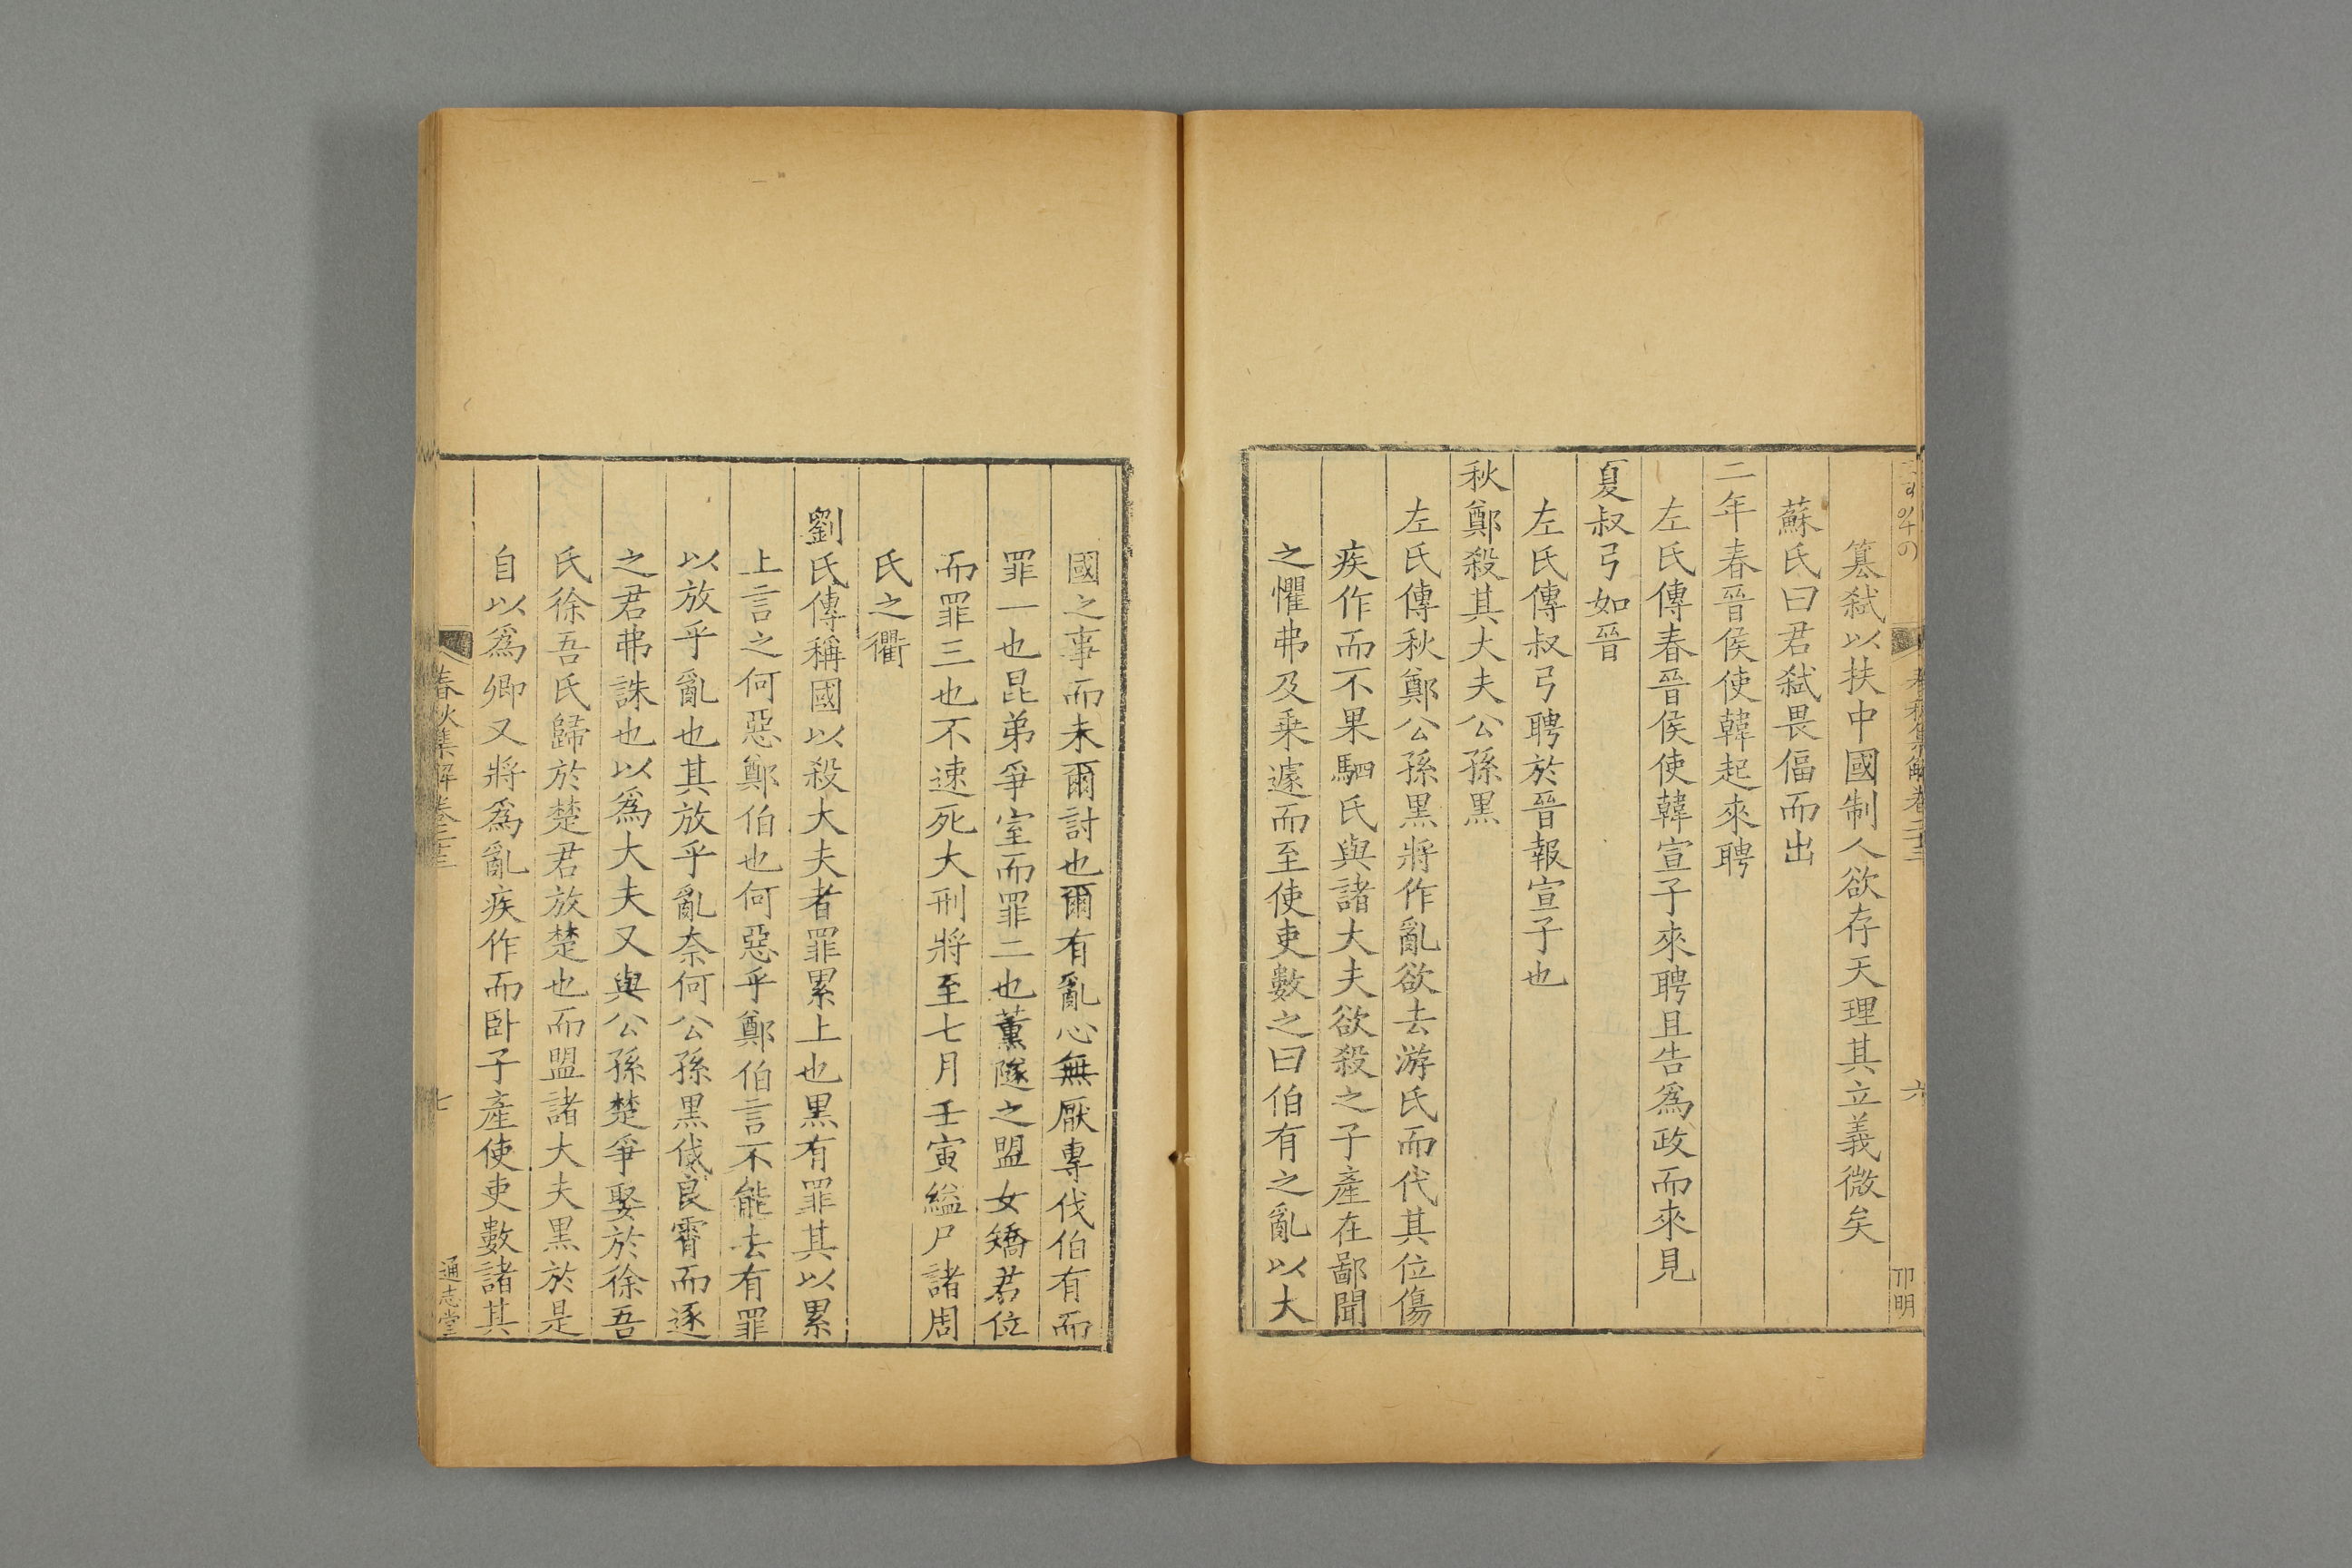 春秋集解卷二十三
六
卬明
篡弒以扶中國制人欲存天理其立義微矣
蘇氏曰君弒畏偪而出
二年春晉侯使韓起來聘
左氏傳春晉侯使韓宣子來聘且告爲政而來見
夏叔弓如晉
左氏傳叔弓聘於晉報宣子也
秋鄭殺其大夫公孫黑
左氏傳秋鄭公孫黑將作亂欲去游氏而代其位傷
疾作而不果駟氏與諸大夫欲殺之子產在鄙聞
之懼弗及乗遽而至使吏數之曰伯有之亂以大
國之事而未爾討也爾有亂心無厭專伐伯有而
罪一也昆弟爭室而罪二也薰隧之盟女矯君位
而罪三也不速死大刑將至七月壬寅縊尸諸周
氏之衢
劉氏傳稱國以殺大夫者罪累上也黑有罪其以累
上言之何惡鄭伯也何惡乎鄭伯言不能去有罪
以放乎亂也其放乎亂奈何公孫黑伐良霄而逐
之君弗誅也以爲大夫又與公孫楚爭娶於徐吾
氏徐吾氏歸於楚君放楚也而盟諸大夫黑於是
自以爲卿又將爲亂疾作而卧子產使吏數諸其
春秋集解卷二十三
七
通志堂